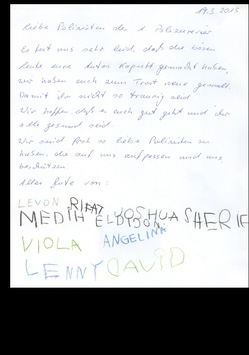 19.3.2015
Liebe Polizisten des 1. Polizeirevier
Es tut uns sehr leid, daß die bösen
Leute eure Autos kaputt gemacht haben,
wir haben euch zum Trost neue gemalt.
Damit ihr nicht so traurig seid
Wir hoffen, daß es euch gut geht und ihr
alle gesund seid
Wir sind froh so liebe Polizisten zu
haben, die auf uns aufpassen und uns
beschützen
Alles Gute von:
LEVON RIFAT
MEDIH ELDION JOSHUA SHERIF
VIOLA ANGELINA
LENNY DAVID